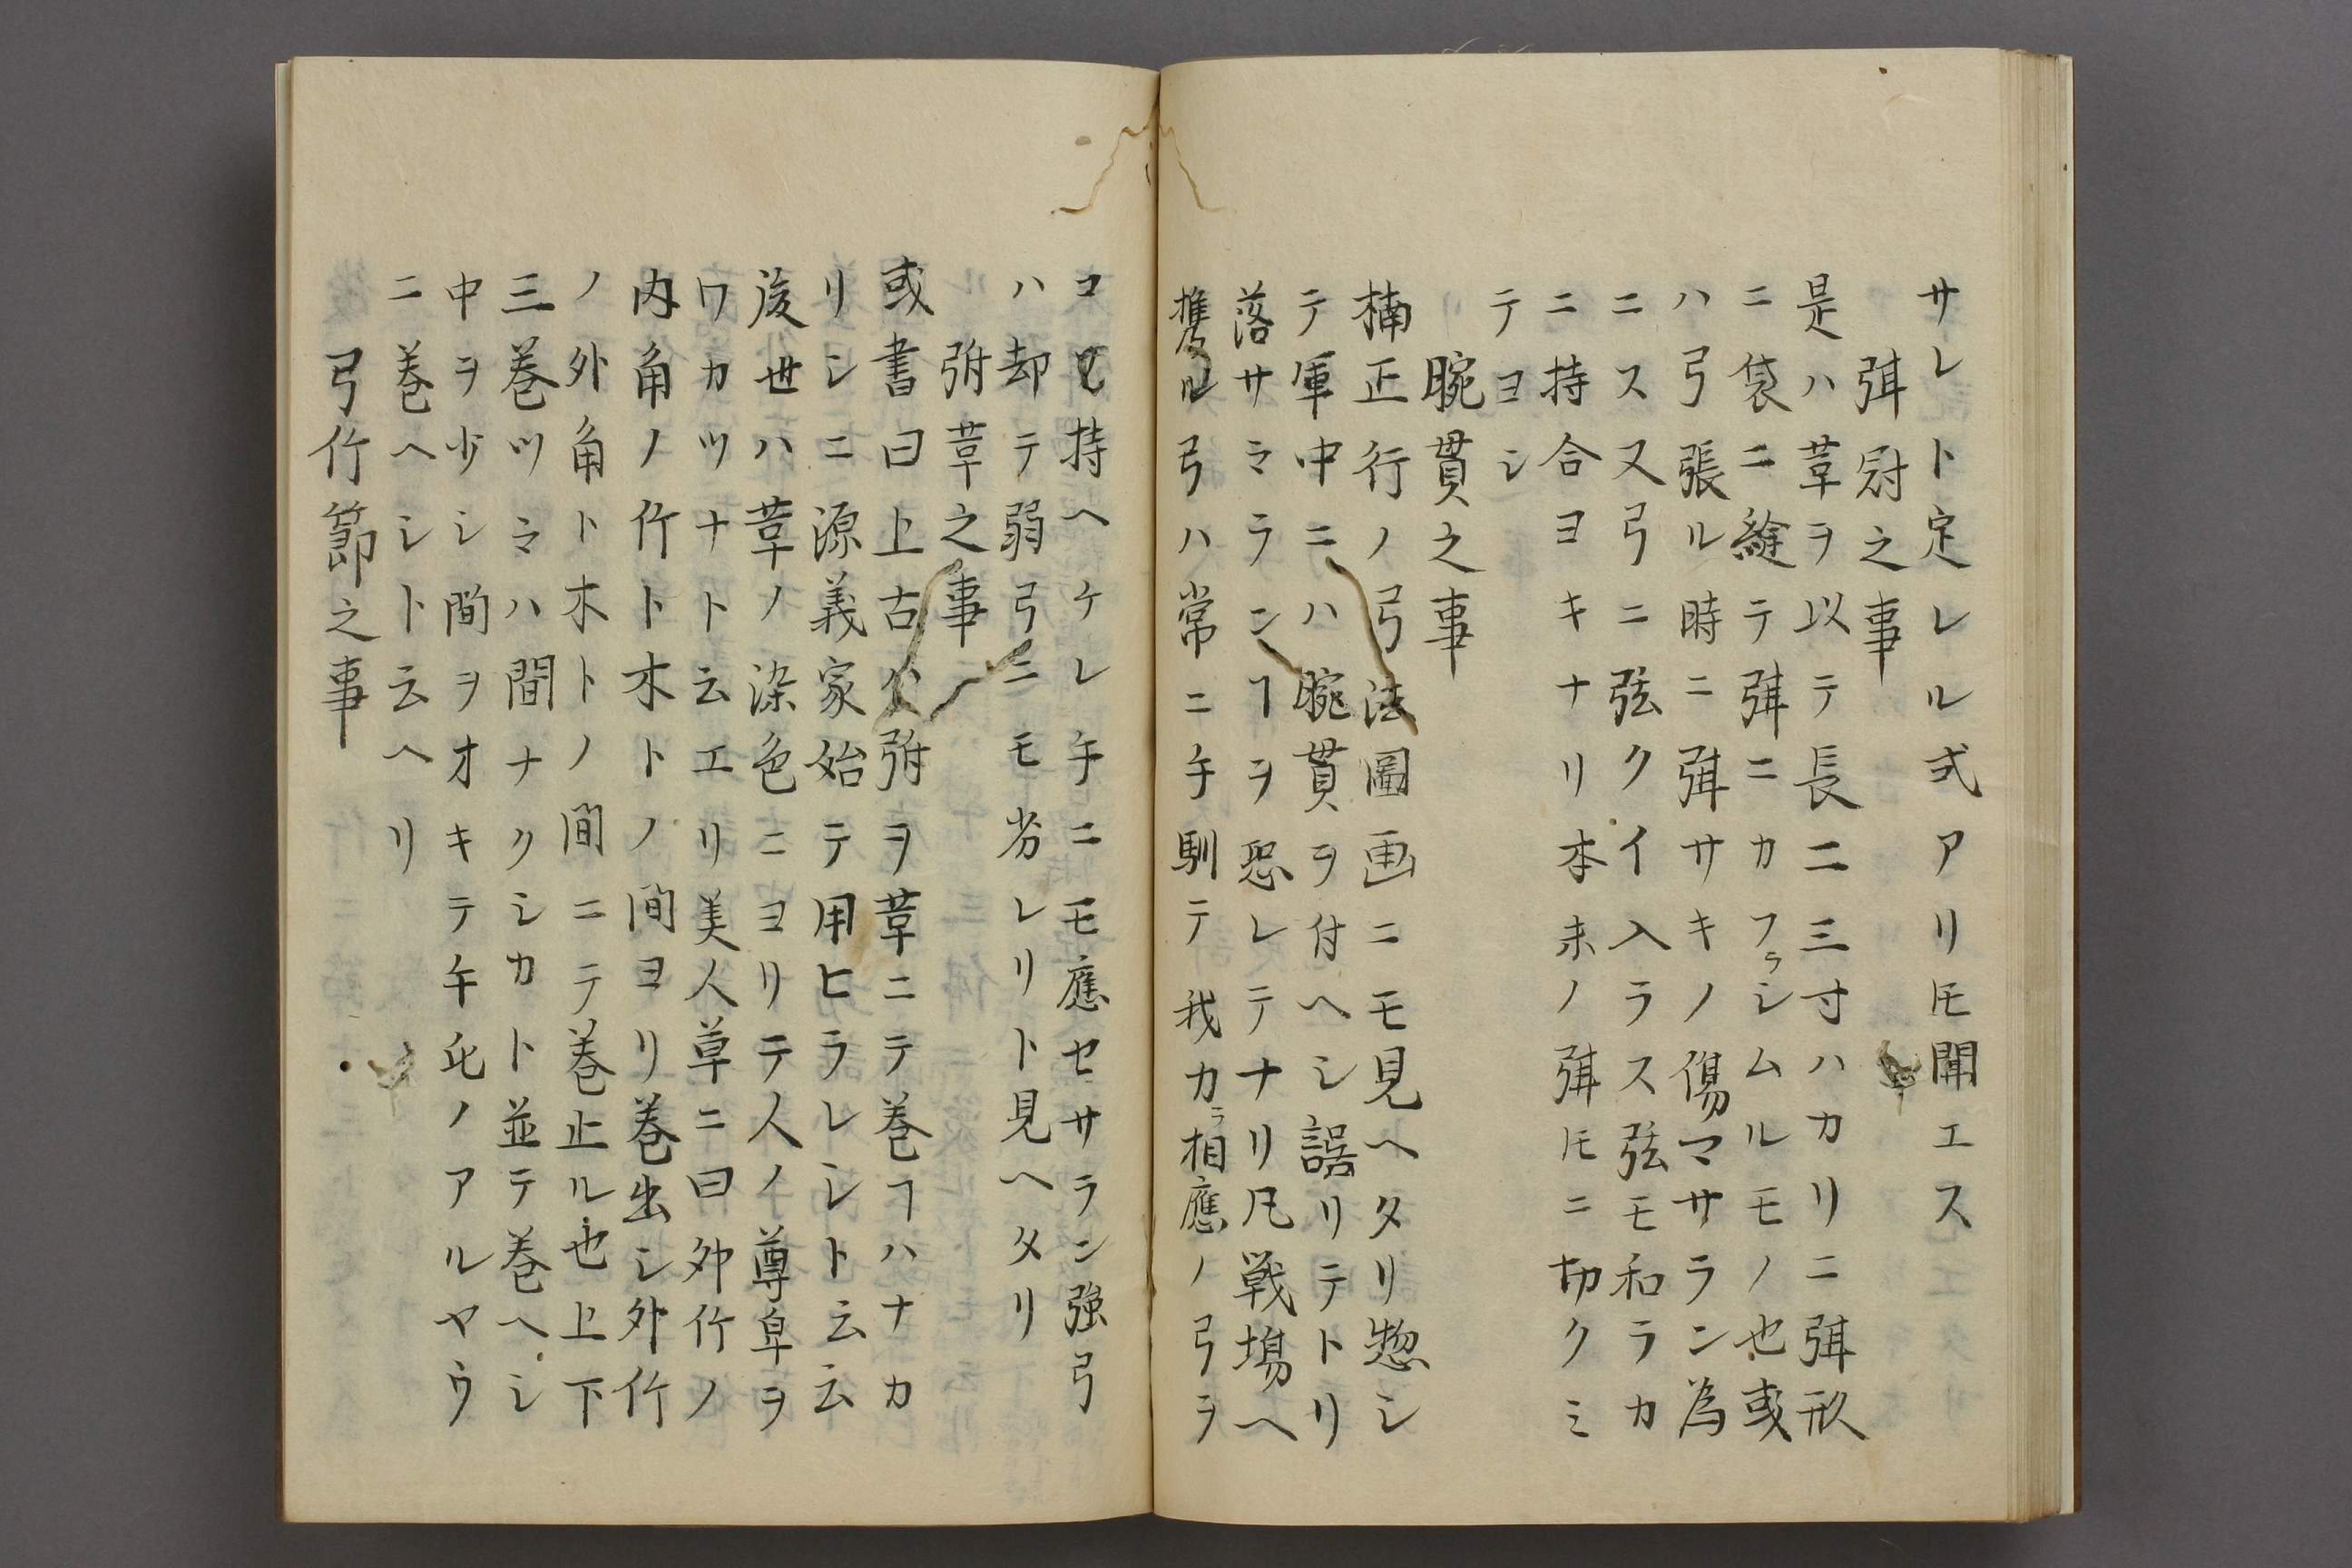 サレト定レル式アリ𪜈聞エス
弭冠之事
是ハ草ヲ以テ長二三寸ハカリニ弭形
ニ袋ニ縫テ弭ニカフラシムルモノ也或
ハ弓張ル時ニ弭サキノ傷マサラン為
ニス又弓ニ弦クイ入ラス弦モ和ラカ
ニ持合ヨキナリ本末ノ弭𪜈ニ切クミ
テヨシ
腕貫之事
楠正行ノ弓法圖画ニモ見ヘタリ惣シ
テ軍中ニハ腕貫ヲ付ヘシ誤リテトリ
落サマランヿヲ恐レテナリ凡戦場ヘ
携ル弓ハ常ニ手馴テ我カラ相應ノ弓ヲ
コソ持ヘケレ手ニモ應セサラン強弓
ハ却テ弱弓ニモ劣レリト見ヘタリ
弣草之事
或書曰上古ハ弣ヲ草ニテ巻ヿハナカ
リシニ源義家始テ用ヒラレシト云云
後世ハ草ノ染色ニヨリテ人ノ尊卑ヲ
ワカツナト云エリ美人草ニ曰外竹ノ
内角ノ竹ト木トノ間ヨリ巻出シ外竹
ノ外角ト木トノ間ニテ巻止ル也上下
三巻ツヽハ間ナクシカト並テ巻ヘシ
中ヲ少シ間ヲオキテ午花ノアルヤウ
ニ巻ヘシト云ヘリ
弓竹節之事